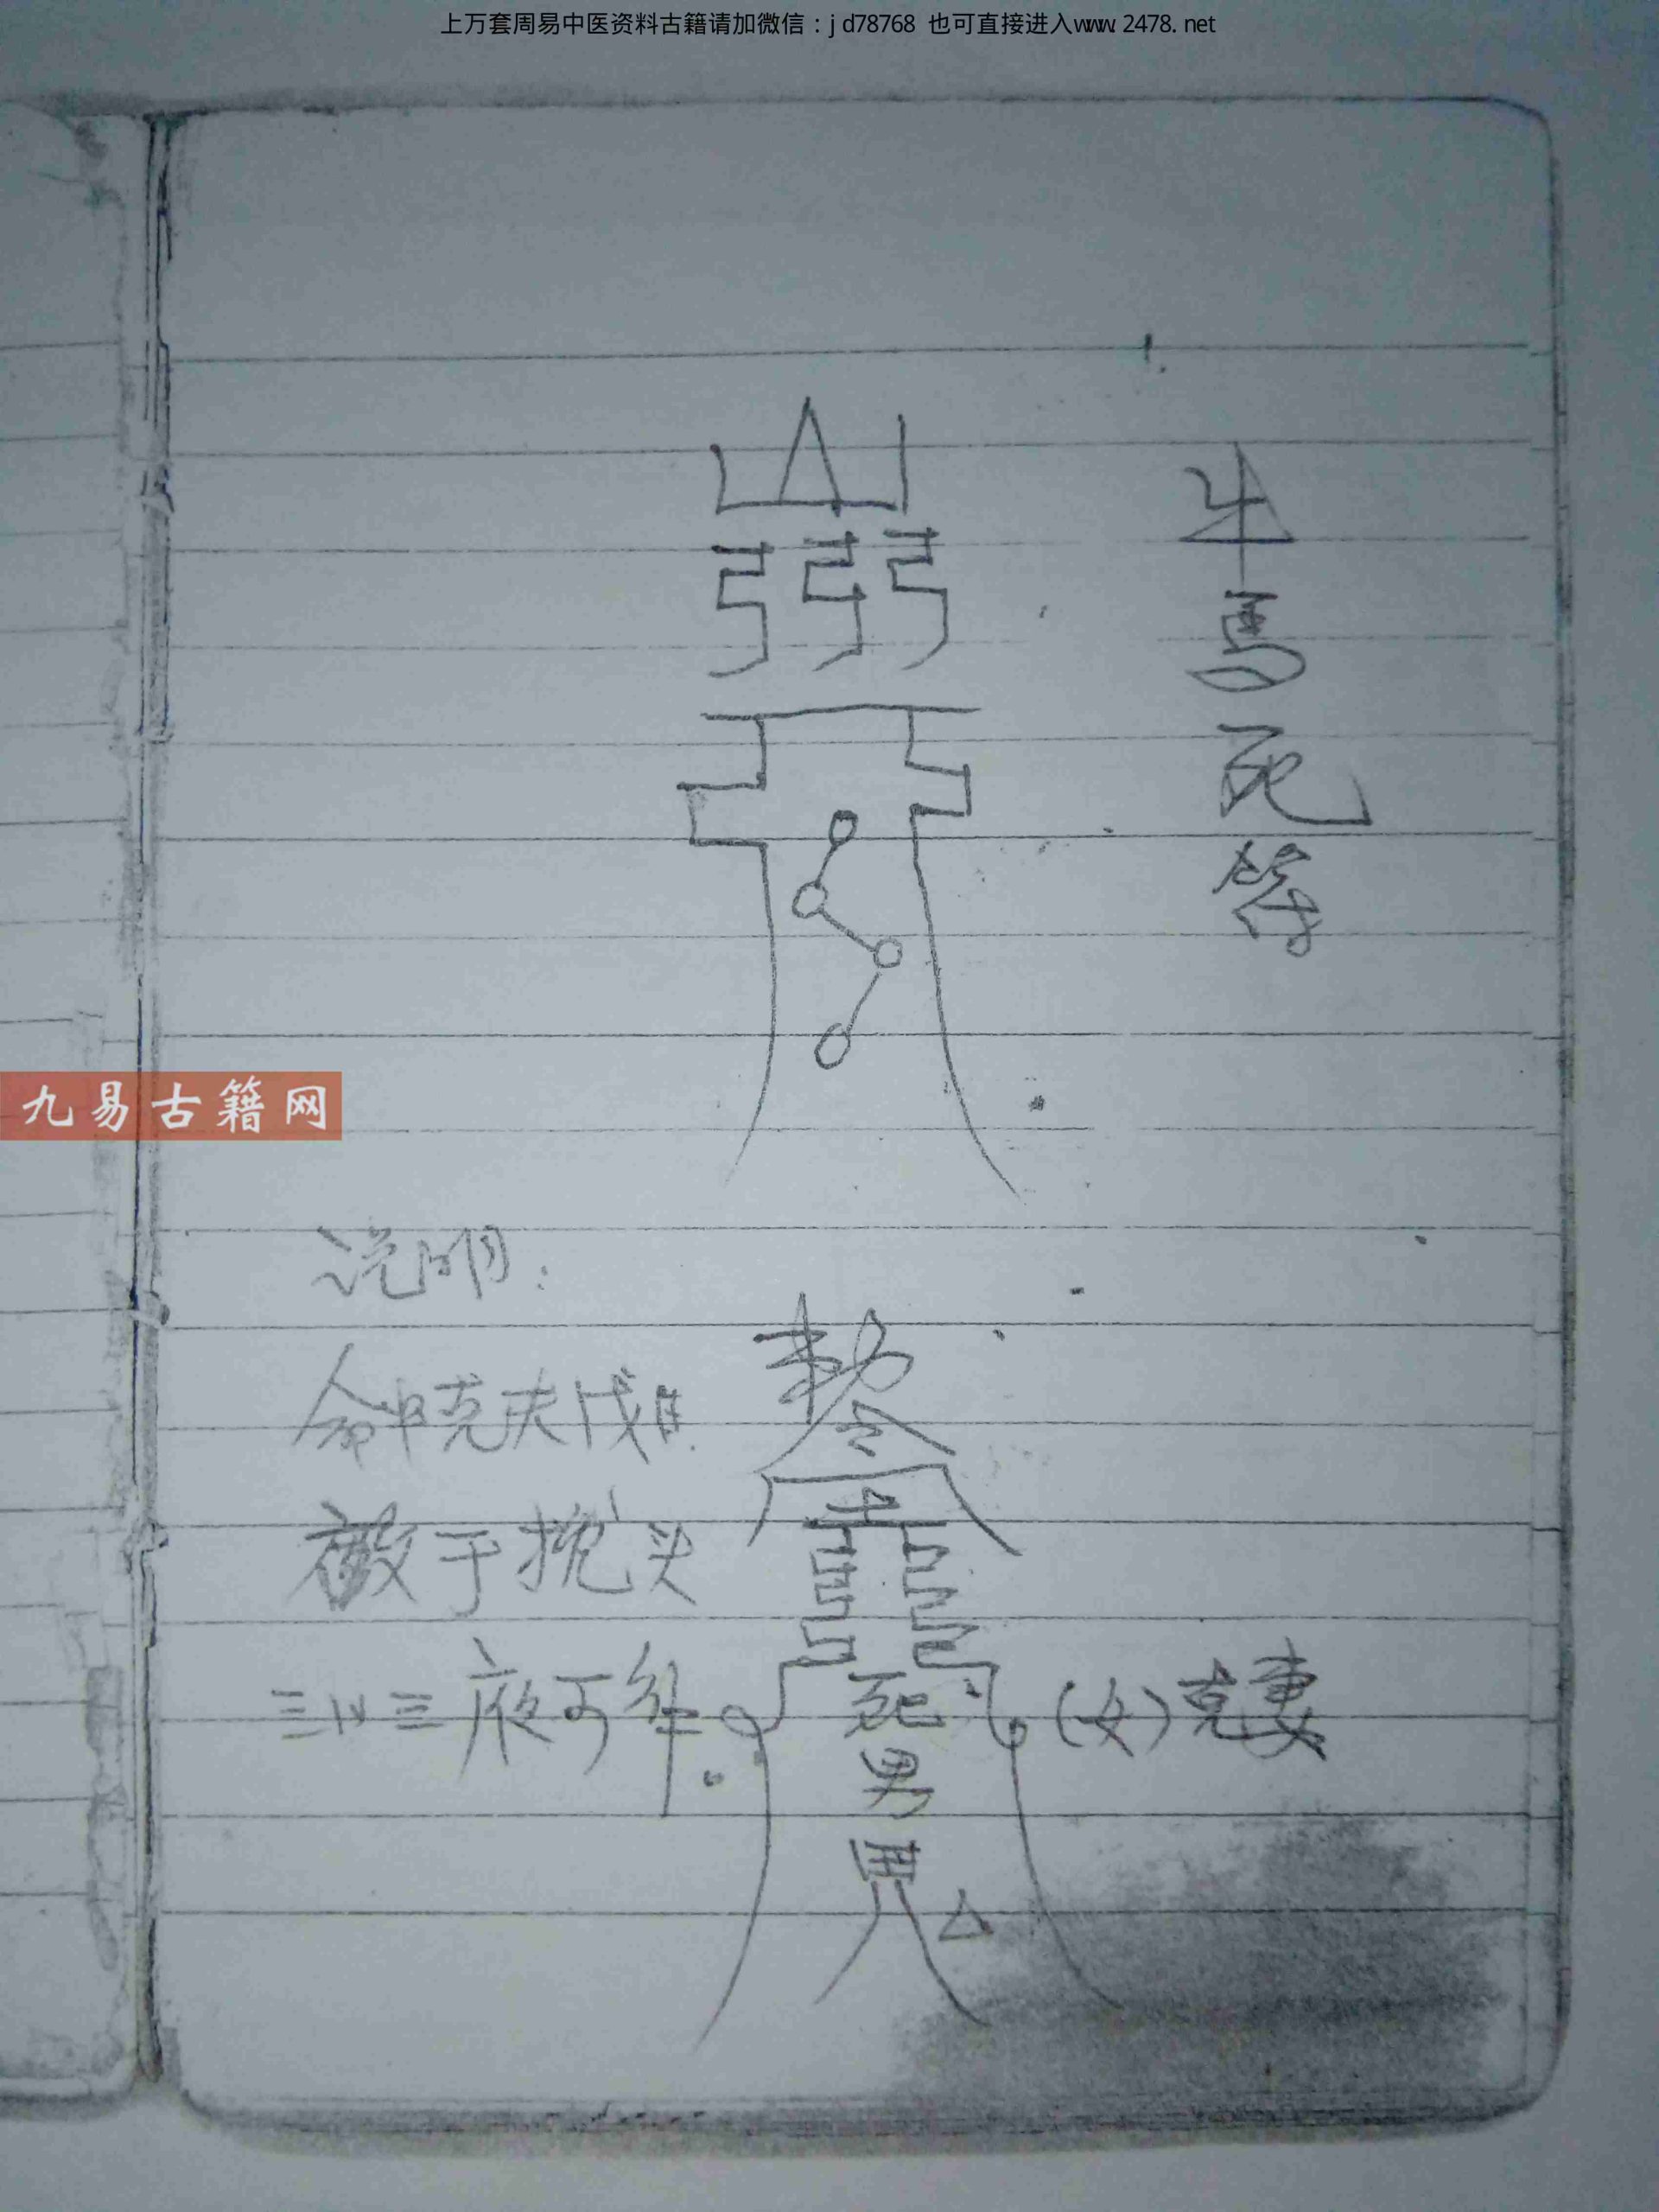 上万套周易中医资料古籍请加微信：jd78768 也可直接进入www.2478.net
山
弓弓弓
牛马死符
九易古籍网
说明：
命中克夫
敕令
于枕头
三以三夜可
死男
（女）克妻